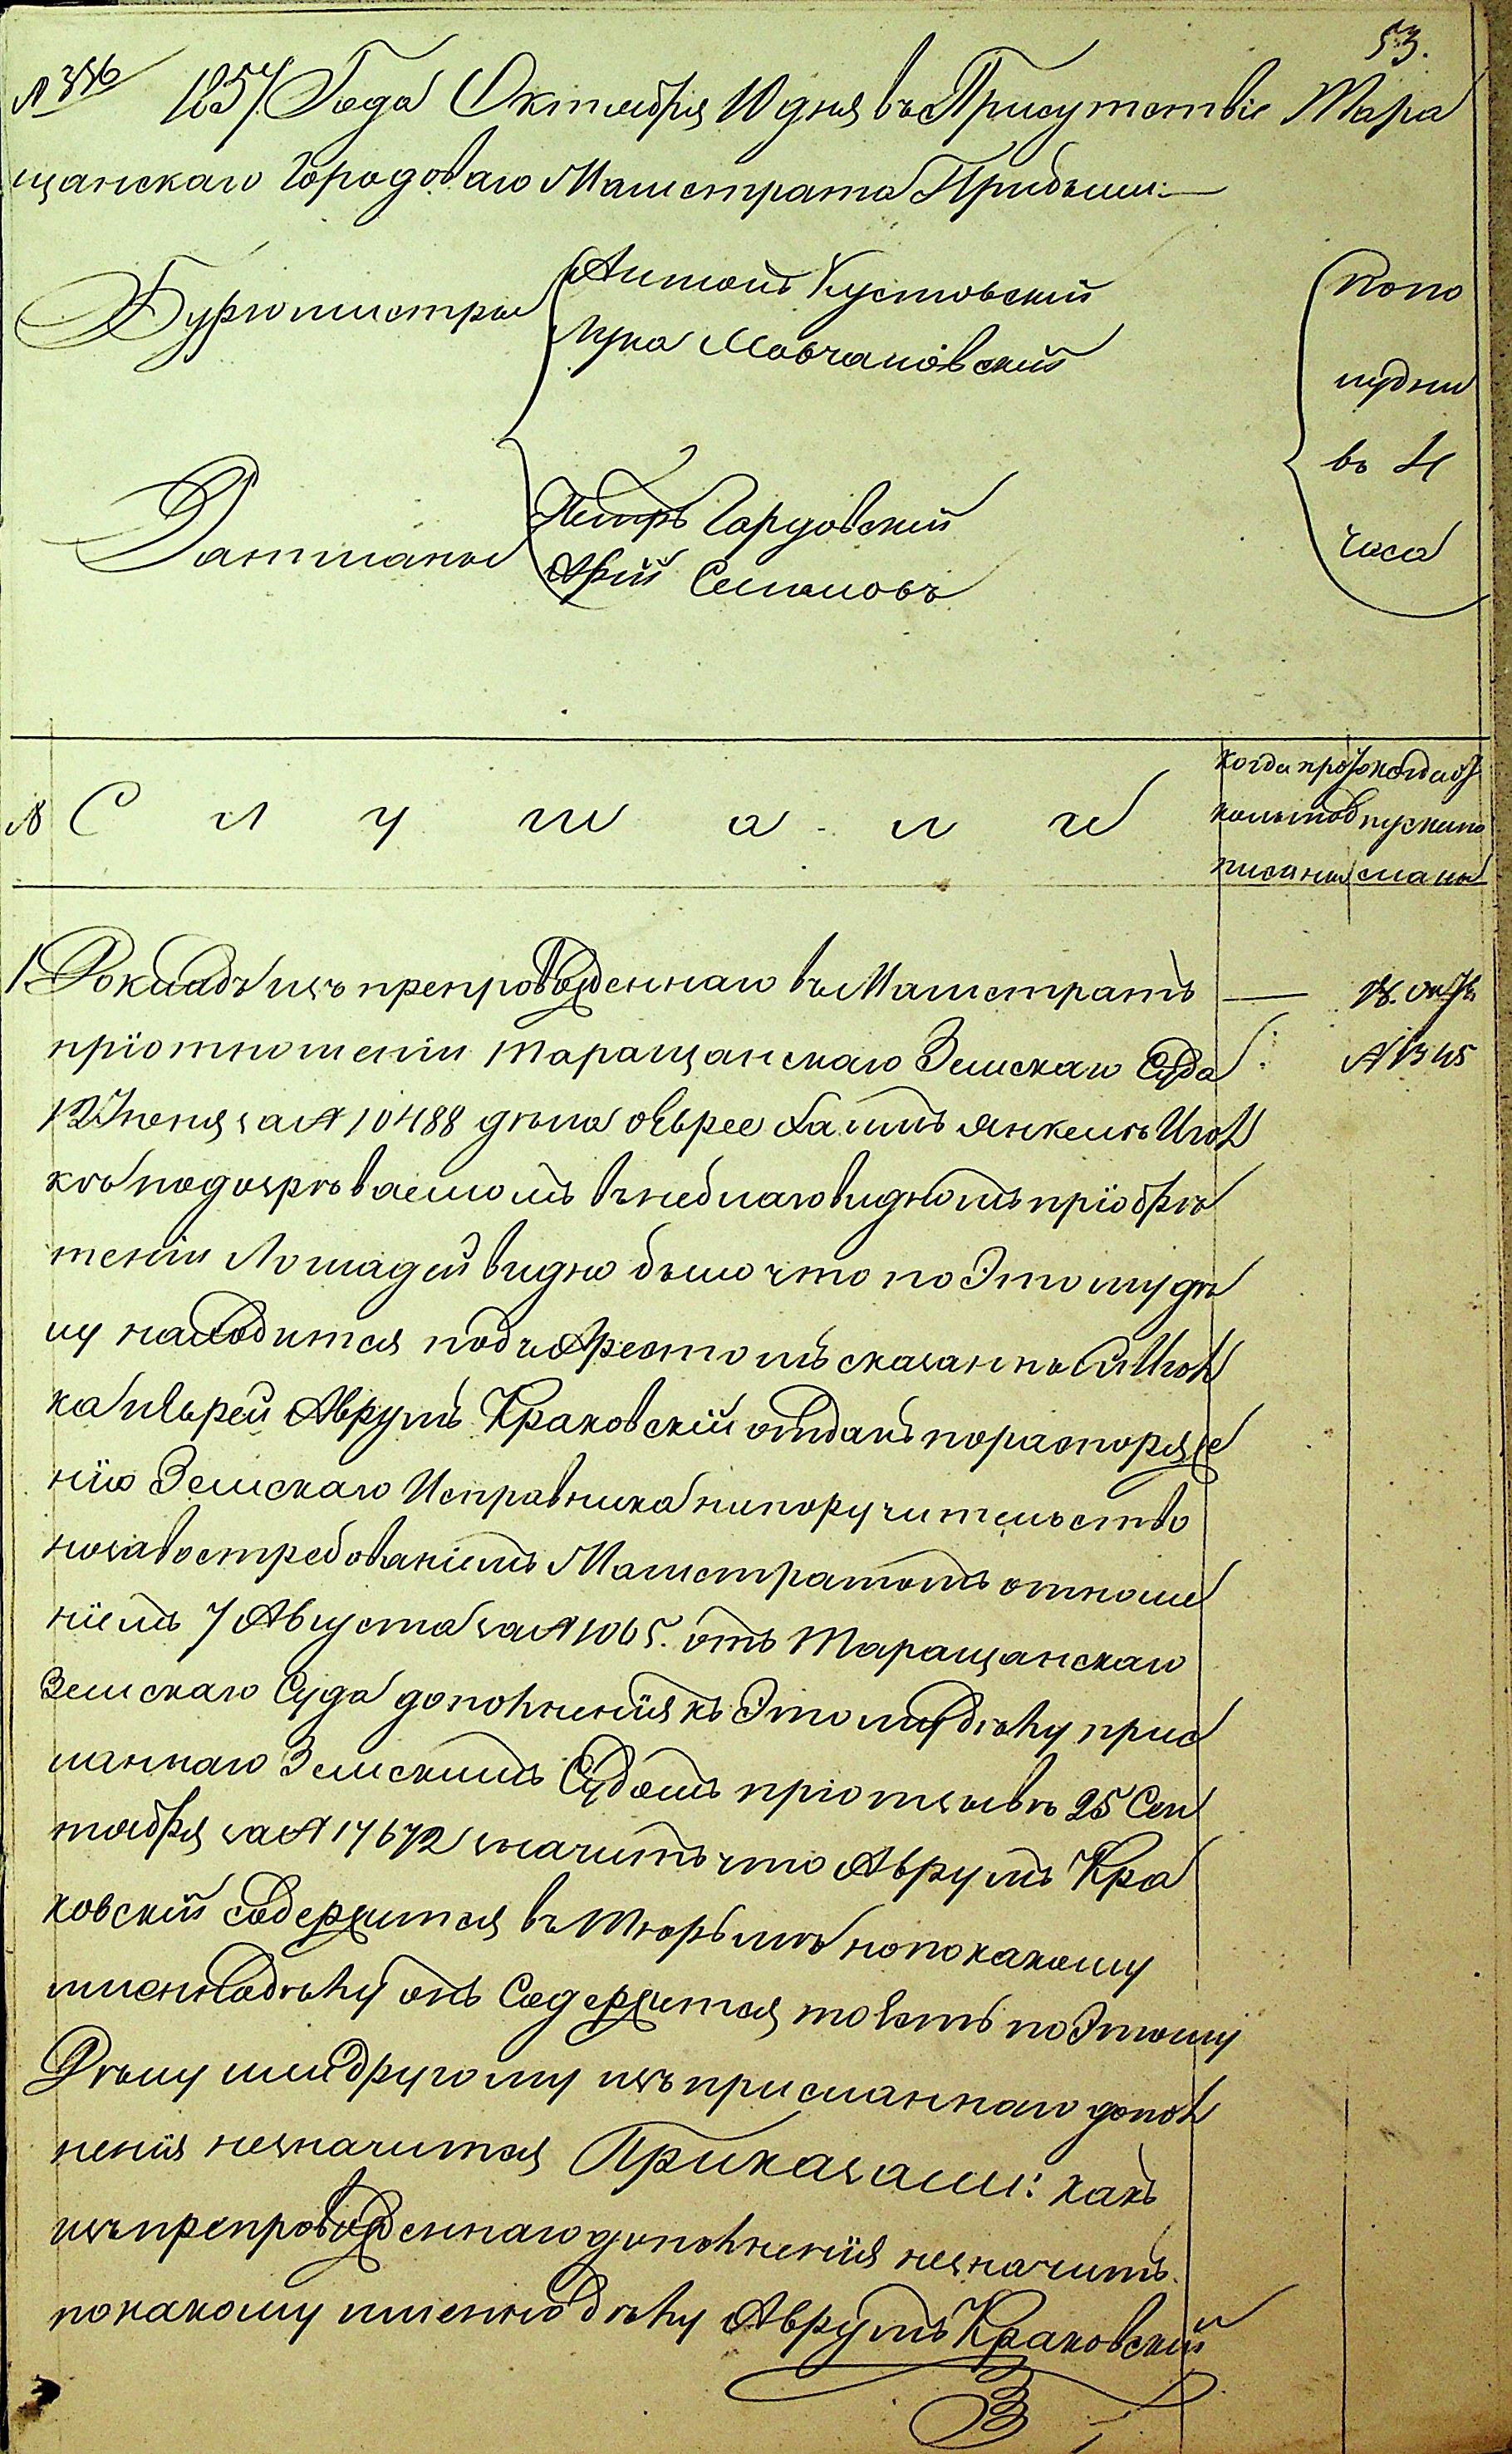 53.
№ 356 1857 Года Октября 10 дня въ Присутствіе Тара
щанскаго Городоваго Магистрата Прибыли:—
Бургомистры
Антонъ Кустовскій
Лука Мовчановскій
Ратманы
Петръ Гардовскій
Арій Семеновъ
Попо
лудни
въ 4
часа
№ С л у ш а л и
когда прото
колъ под
писанъ
когда от
пуски по
сланы
1. Докладъ изъ препровожденнаго въ Магистратъ — 18. Октя.
пріотношеніи таращанскаго Земскаго Суда № 1345
12 Іюня за № 10488 дѣла оЕврее Хаимъ Янкель Шог
кѣ подозрѣваемомъ въ неблаговидномъ пріобрѣ
теніи Лошадей видно было что по Этому дѣ
лу находится подъ Арестомъ сказанный Шог
ка иЕврей Аврумъ Краковскій отданъ пораспоряже
нію Земскаго Исправника напоручительство
но завостребованіемъ Магистратомъ отноше
ніемъ 7 Августа за № 1065. отъ Таращанскаго
Земскаго Суда дополненія къ Этому дѣлу прис
ланнаго Земскимъ Судомъ пріотзывѣ 25 Сен
тября за № 17672 значитъ что Аврумъ Кра
ковскій содержится въ Тюрьмѣ но по какому
именно дѣлу онъ Содержится то есть по Этому
Дѣлу или другому изъ присланнаго допол
ненія незначится Приказали: какъ
изъ препровожденнаго дополненія незначитъ
по какому именно дѣлу Аврумъ Краковскій